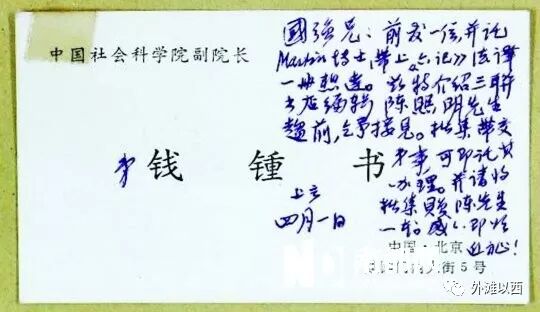 中国社会科学院副院长
國強兄：前发一信，并託
Martin博士带上《六记》法译
一册想达。兹特介绍三联
书店编辑 陈明先生
趋前，乞予接见。拙集带交
书事，可即託其
办理。并请将
拙集赐陈先生
一本。感々即颂
近祉！
弟 钱锺书
上言
四月一日
中国·北京
大街5号
外滩以西